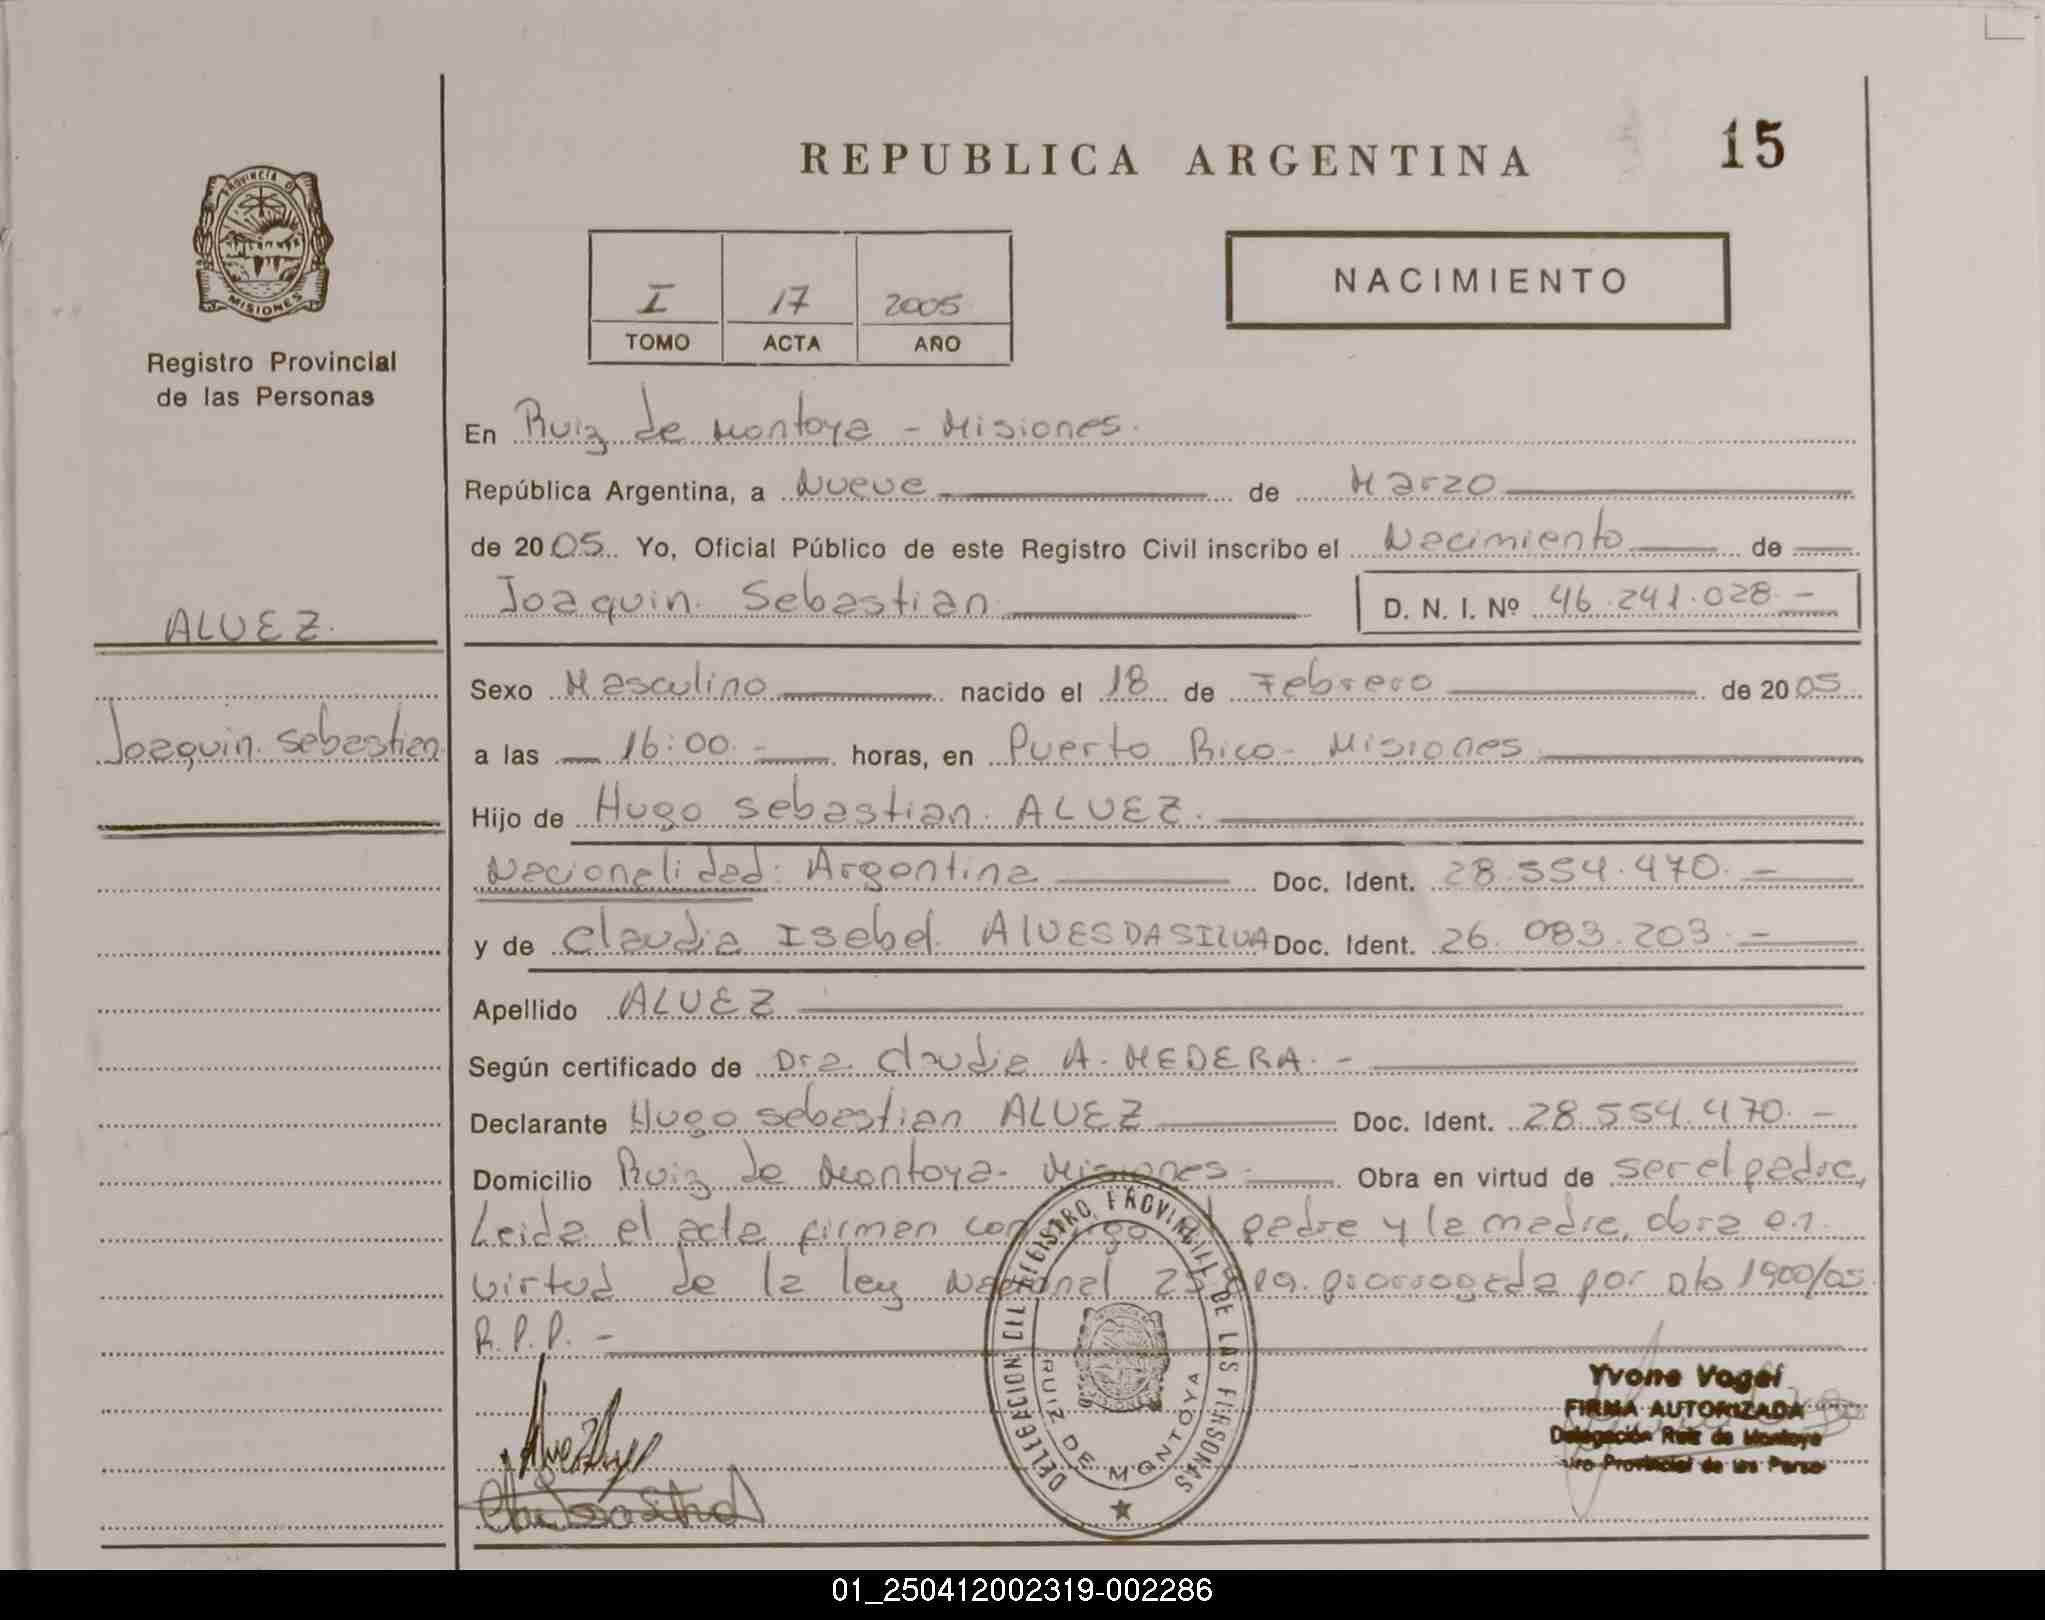 REPUBLICA ARGENTINA
15
PROVINCIA D
MISIONES
Registro Provincial
de las Personas
I 17 2005
TOMO ACTA AÑO
NACIMIENTO
En Ruiz de Montoya - Misiones.
República Argentina, a Nueve de Marzo
de 2005. Yo, Oficial Público de este Registro Civil inscribo el Nacimiento de
Joaquin Sebastian D. N. I. Nº 46.241.028.-
ALVEZ.
Joaquin Sebastian
Sexo Masculino nacido el 18 de Febrero de 2005
a las 16:00.- horas, en Puerto Rico- Misiones
Hijo de Hugo Sebastian ALVEZ.
Nacionalidad: Argentina Doc. Ident. 28.554.470.-
y de Claudia Isabel ALVES DA SILVA Doc. Ident. 26.083.203.-
Apellido ALVEZ
Según certificado de Dra Claudia A. MEDERA.-
Declarante Hugo Sebastian ALVEZ Doc. Ident. 28.554.470.-
Domicilio Ruiz de Montoya- Misiones- Obra en virtud de ser el padre,
Leida el acta firman conmigo el padre y la madre, obra en
virtud de la ley Nacional prorrogada por Dto 1900/05.
R.P.P.-
DELEGACION DEL REGISTRO PROVINCIAL DE LAS PERSONAS
RUIZ DE MONTOYA
Yvone Vogel
FIRMA AUTORIZADA
Delegación Ruiz de Montoya
Provincial de las Perso
01_250412002319-002286